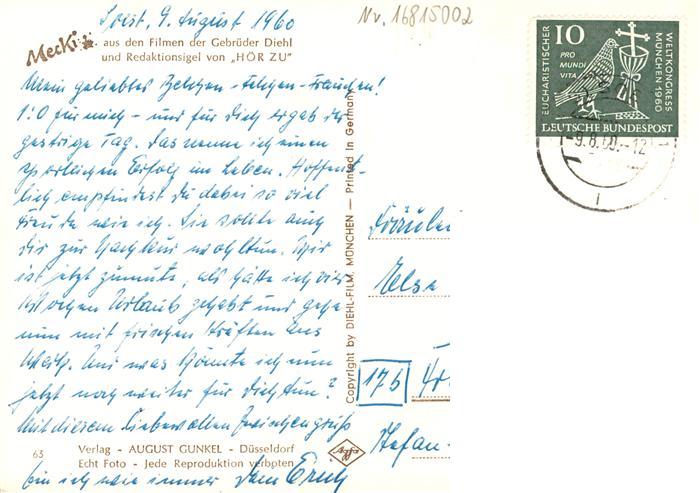 Soest, 9. August 1960
Nv. 16815002
Mecki aus den Filmen der Gebrüder Diehl
und Redaktionsigel von „HÖR ZU"
Mein geliebtes!
1:0 für mich – und für Dich ergab der
gestrige Tag. Das nenne ich einen
Erfolg im Leben. Hoffent-
lich empfindest Du dabei so viel
Freude wie ich. Sie sollte auch
Dir zur Nachkur wohltun. Mir
ist jetzt zumute, als hätte ich vier
Wochen Urlaub gehabt und gehe
nun mit frischen Kräften ans
Werk. Und was könnte ich nun
jetzt noch weiter für Dich tun?
Mit diesem liebevollen Zwischengruß
bin ich wie immer Dein Erich
63
Verlag - AUGUST GUNKEL - Düsseldorf
Echt Foto - Jede Reproduktion verboten
Copyright by DIEHL-FILM, MÜNCHEN — Printed in Germany
Agfa
Fräulei
Else
17b
Stefan-
EUCHARISTISCHER WELTKONGRESS
MÜNCHEN 1960
10
PRO
MUNDI
VITA
DEUTSCHE BUNDESPOST
-9.8.60.-12